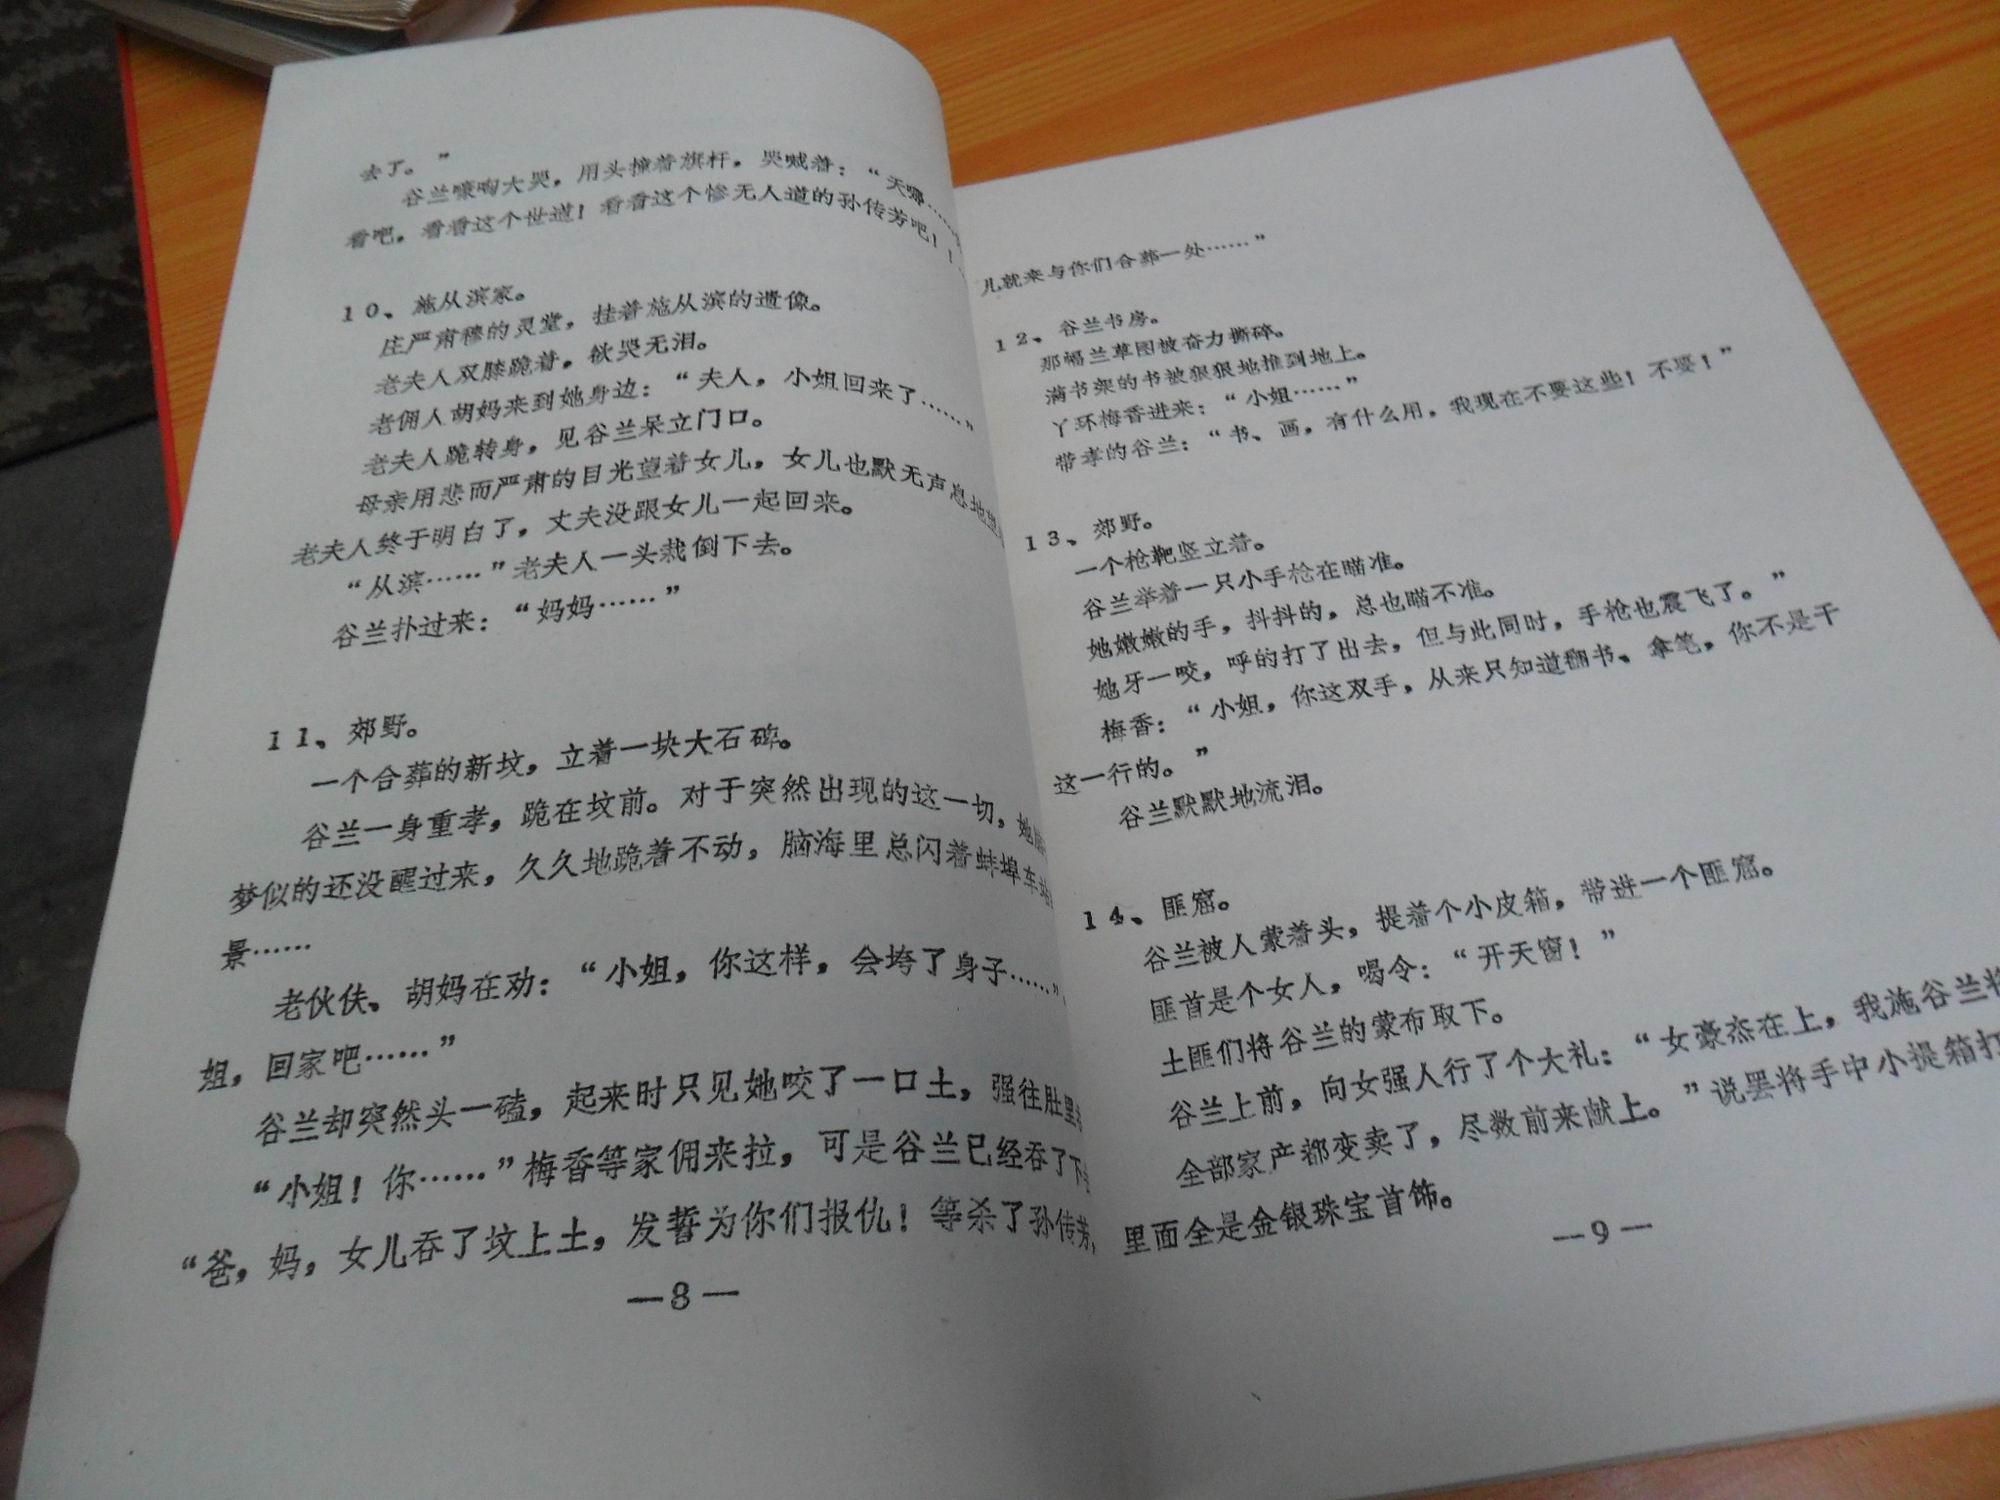 去了。”
谷兰嚎啕大哭，用头撞着旗杆，哭喊着：“天哪……
看吧，看看这个世道！看看这个惨无人道的孙传芳吧！！
10、施从滨家。
庄严肃穆的灵堂，挂着施从滨的遗像。
老夫人双膝跪着，欲哭无泪。
老佣人胡妈来到她身边：“夫人，小姐回来了……”
老夫人跪转身，见谷兰呆立门口。
母亲用悲而严肃的目光望着女儿，女儿也默无声息地
老夫人终于明白了，丈夫没跟女儿一起回来。
“从滨……”老夫人一头栽倒下去。
谷兰扑过来：“妈妈……”
11、郊野。
一个合葬的新坟，立着一块大石碑。
谷兰一身重孝，跪在坟前。对于突然出现的这一切，她
梦似的还没醒过来，久久地跪着不动，脑海里总闪着蚌埠车
景……
老伙伕、胡妈在劝：“小姐，你这样，会垮了身子……”
姐，回家吧……”
谷兰却突然头一磕，起来时只见她咬了一口土，强往肚里
“小姐！你……”梅香等家佣来拉，可是谷兰已经吞了下
“爸，妈，女儿吞了坟上土，发誓为你们报仇！等杀了孙传芳，
—8—
儿就来与你们合葬一处……”
12、谷兰书房。
那幅兰草图被奋力撕碎。
满书架的书被狠狠地推到地上。
丫环梅香进来：“小姐……”
带孝的谷兰：“书、画，有什么用，我现在不要这些！不要！”
13、郊野。
一个枪靶竖立着。
谷兰举着一只小手枪在瞄准。
她嫩嫩的手，抖抖的，总也瞄不准。
她牙一咬，呼的打了出去，但与此同时，手枪也震飞了。”
梅香：“小姐，你这双手，从来只知道翻书、拿笔，你不是干
这一行的。”
谷兰默默地流泪。
14、匪窟。
谷兰被人蒙着头，提着个小皮箱，带进一个匪窟。
匪首是个女人，喝令：“开天窗！”
土匪们将谷兰的蒙布取下。
谷兰上前，向女强人行了个大礼：“女豪杰在上，我施谷兰将
全部家产都变卖了，尽数前来献上。”说罢将手中小提箱打
里面全是金银珠宝首饰。
—9—